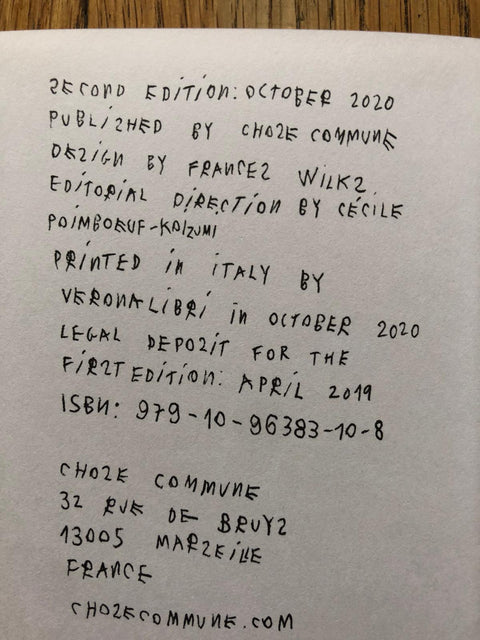 SECOND EDITION: OCTOBER 2020
PUBLISHED BY CHOSE COMMUNE
DESIGN BY FRANCES WILKS.
EDITORIAL DIRECTION BY CÉCILE
POIMBOEUF-KOIZUMI
PRINTED IN ITALY BY
VERONALIBRI IN OCTOBER 2020
LEGAL DEPOSIT FOR THE
FIRST EDITION: APRIL 2019
ISBN: 979-10-96383-10-8
CHOSE COMMUNE
32 RUE DE BRUYS
13005 MARSEILLE
FRANCE
CHOSECOMMUNE.COM